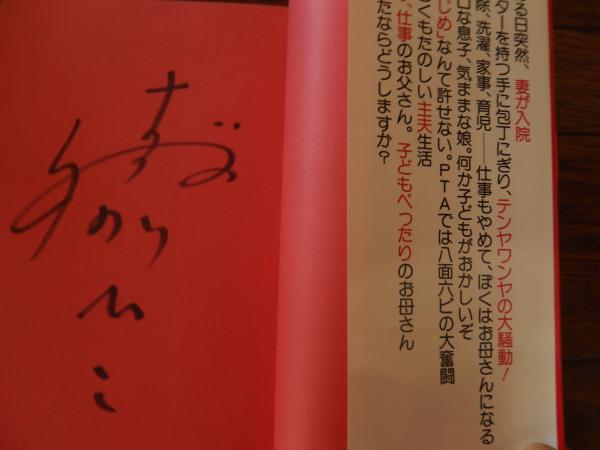 る日突然、妻が入院
ターを持つ手に包丁にぎり、テンヤワンヤの大騒動!
除、洗濯、家事、育児――仕事もやめて、ぼくはお母さんになる
口な息子、気ままな娘。何か子どもがおかしいぞ
じめ」なんて許せない。PTAでは八面六ビの大奮闘
くもたのしい主夫生活
、仕事のお父さん。子どもべったりのお母さん
たならどうしますか?